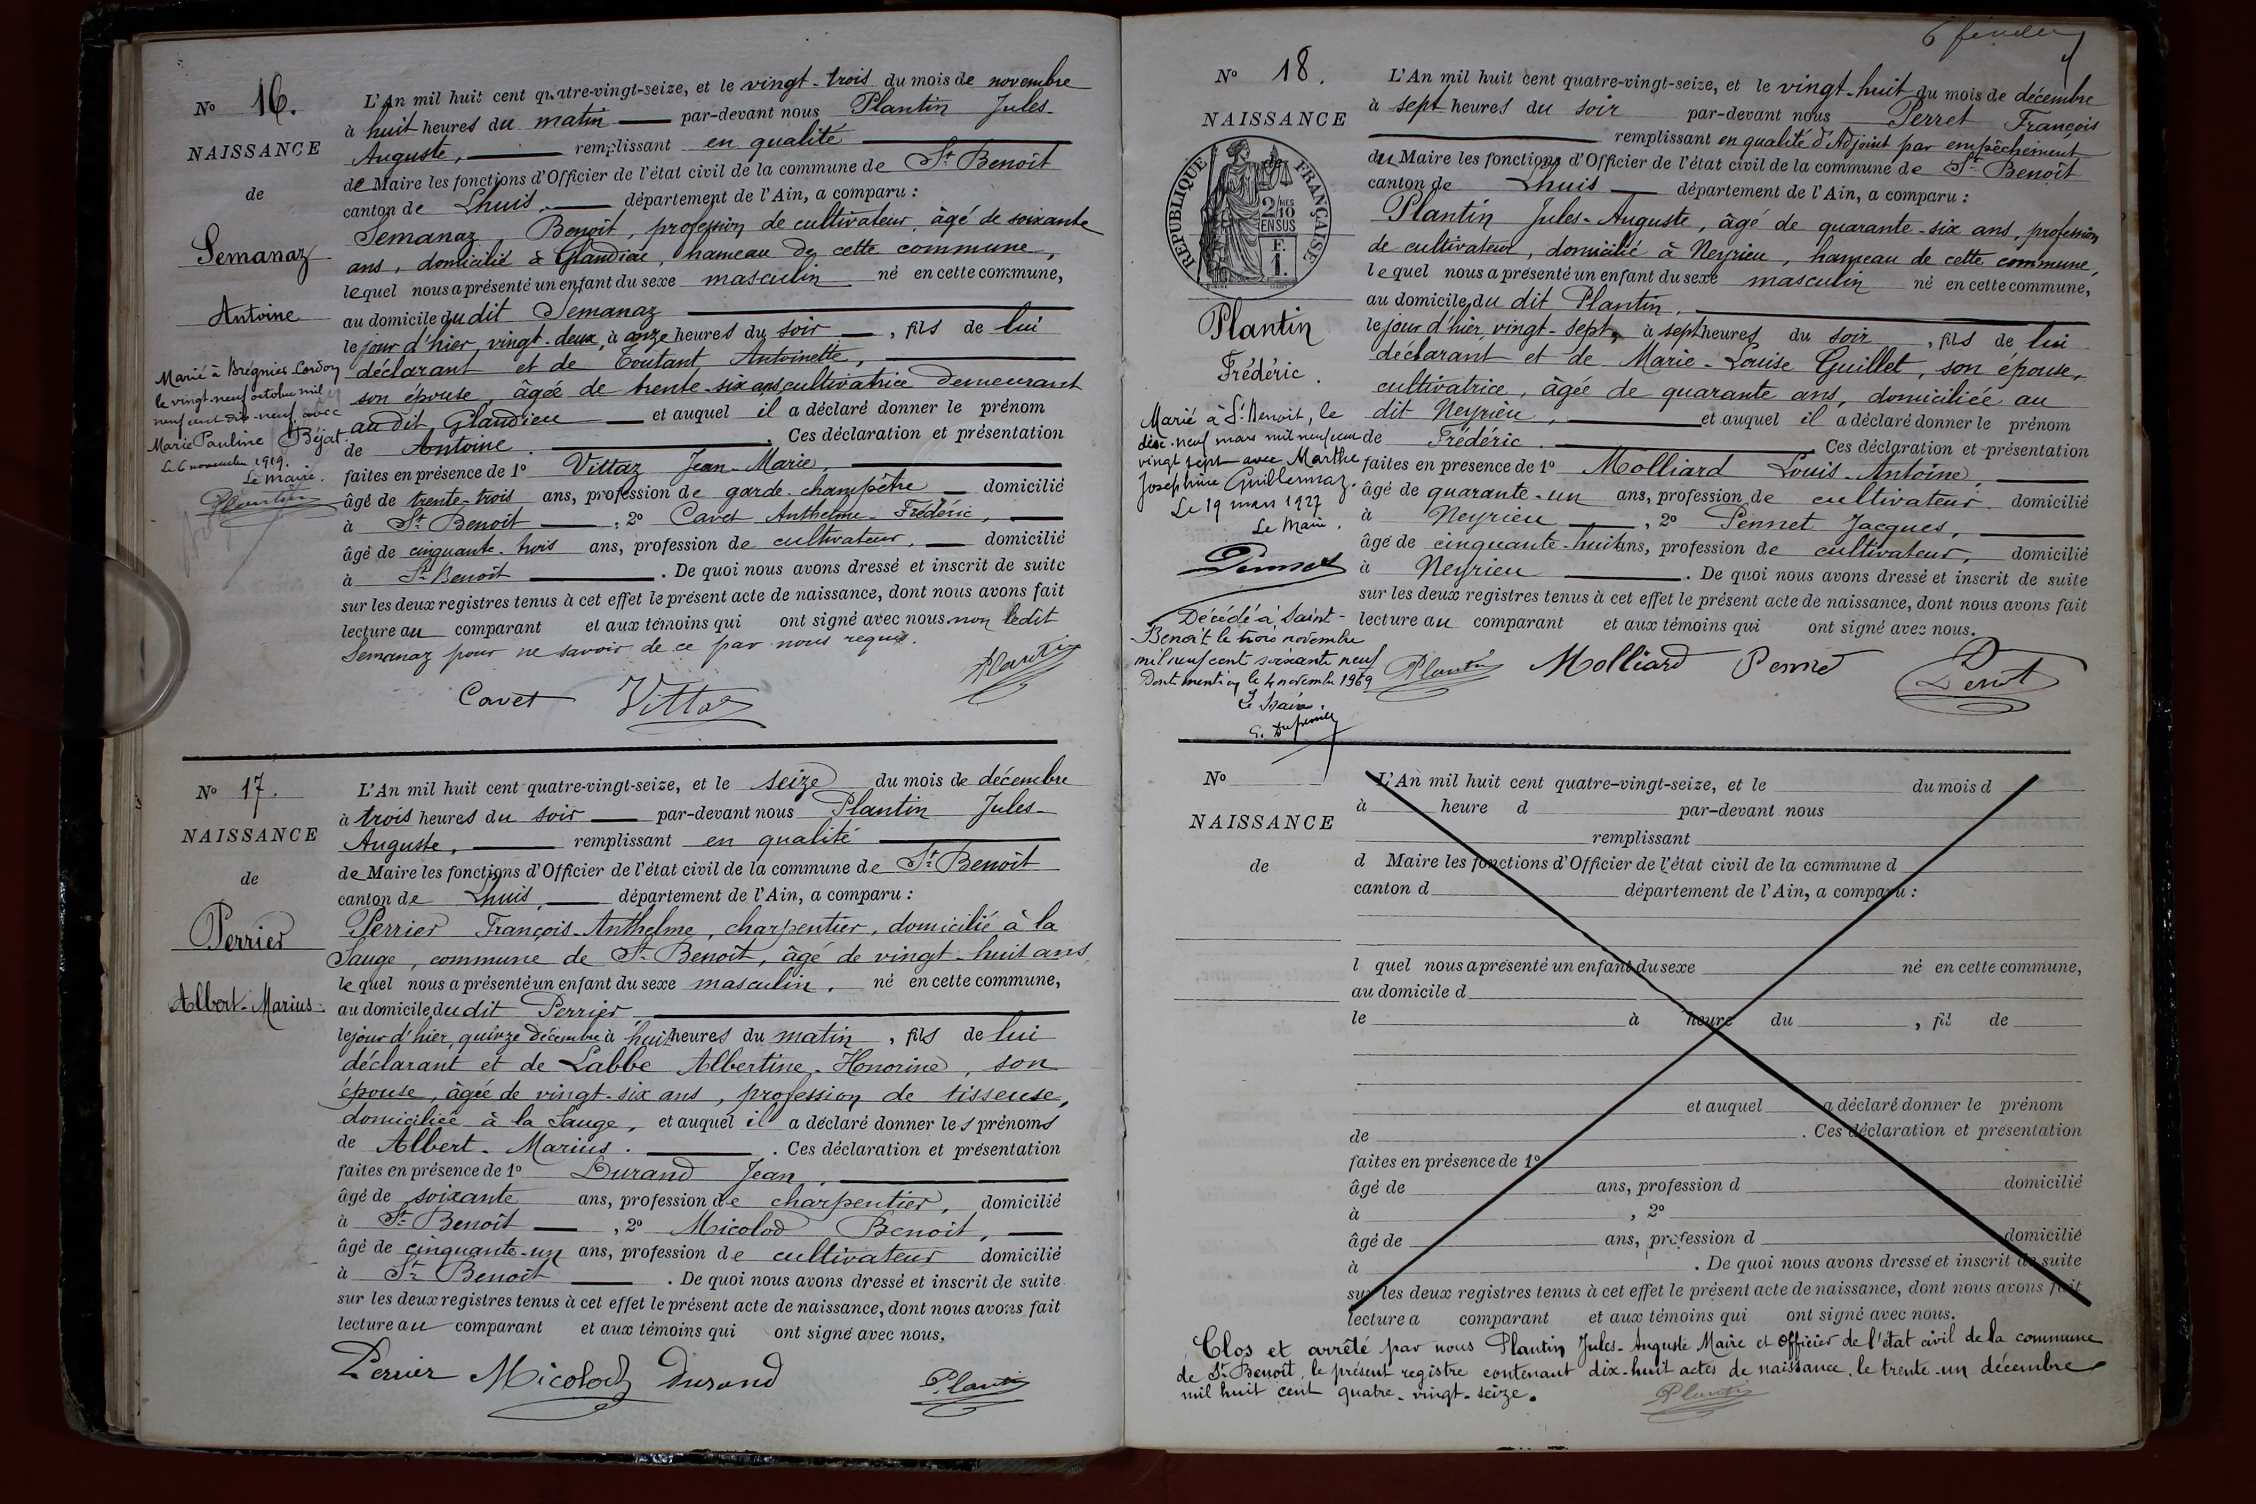 No 16.
NAISSANCE
de
Semanaz
Antoine
Marié à Brégnier Cordon
le vingt-neuf octobre mil
neuf cent dix-neuf avec
Marie Pauline Béjat.
Le 6 novembre 1919.
Le Maire.
Plantin
L'An mil huit cent quatre-vingt-seize, et le vingt-trois du mois de novembre
à huit heures du matin par-devant nous Plantin Jules-
Auguste, remplissant en qualité
de Maire les fonctions d'Officier de l'état civil de la commune de St Benoît
canton de Lhuis, département de l'Ain, a comparu :
Semanaz Benoît, profession de cultivateur, âgé de soixante
ans, domicilié à Glandieu, hameau de cette commune,
lequel nous a présenté un enfant du sexe masculin né en cette commune,
au domicile du dit Semanaz
le jour d'hier, vingt-deux, à onze heures du soir, fils de lui
déclarant et de Toutant Antoinette,
son épouse, âgée de trente-six ans cultivatrice demeurant
au dit Glandieu et auquel il a déclaré donner le prénom
de Antoine. Ces déclaration et présentation
faites en présence de 1o Vittaz Jean-Marie,
âgé de trente-trois ans, profession de garde-champêtre domicilié
à St Benoît, 2o Cavet Anthelme-Frédéric,
âgé de cinquante-trois ans, profession de cultivateur, domicilié
à St Benoît. De quoi nous avons dressé et inscrit de suite
sur les deux registres tenus à cet effet le présent acte de naissance, dont nous avons fait
lecture au comparant et aux témoins qui ont signé avec nous non ledit
Semanaz pour ne savoir de ce par nous requis.
Cavet Vittaz Plantin
No 17.
NAISSANCE
de
Perrier
Albert-Marius
L'An mil huit cent quatre-vingt-seize, et le seize du mois de décembre
à trois heures du soir par-devant nous Plantin Jules-
Auguste, remplissant en qualité
de Maire les fonctions d'Officier de l'état civil de la commune de St Benoît
canton de Lhuis, département de l'Ain, a comparu :
Perrier François-Anthelme, charpentier, domicilié à la
Sauge, commune de St Benoît, âgé de vingt-huit ans,
lequel nous a présenté un enfant du sexe masculin, né en cette commune,
au domicile du dit Perrier,
le jour d'hier, quinze décembre à huit heures du matin, fils de lui
déclarant et de Labbe Albertine-Honorine, son
épouse, âgée de vingt-six ans, profession de tisseuse,
domiciliée à la Sauge, et auquel il a déclaré donner les prénoms
de Albert-Marius. Ces déclaration et présentation
faites en présence de 1o Durand Jean,
âgé de soixante ans, profession de charpentier, domicilié
à St Benoît, 2o Micolod Benoît,
âgé de cinquante-un ans, profession de cultivateur domicilié
à St Benoît. De quoi nous avons dressé et inscrit de suite
sur les deux registres tenus à cet effet le présent acte de naissance, dont nous avons fait
lecture au comparant et aux témoins qui ont signé avec nous.
Perrier Micolod Durand Plantin
No 18.
NAISSANCE
RÉPUBLIQUE FRANÇAISE
2/10 EN SUS
F.
1.
Plantin
Frédéric.
Marié à St Benoit, le
dix-neuf mars mil neuf cent
vingt sept avec Marthe
Joséphine Guillermaz.
Le 19 mars 1927
Le Maire.
Pennet
Décédé à Saint-
Benoît le trois novembre
mil neuf cent soixante neuf
Dont mention le 4 novembre 1969
Le Maire.
L'An mil huit cent quatre-vingt-seize, et le vingt-huit du mois de décembre
à sept heures du soir par-devant nous Perret François
remplissant en qualité d'Adjoint par empêchement
du Maire les fonctions d'Officier de l'état civil de la commune de St Benoît
canton de Lhuis département de l'Ain, a comparu :
Plantin Jules-Auguste, âgé de quarante-six ans, profession
de cultivateur, domicilié à Neyrieu, hameau de cette commune,
lequel nous a présenté un enfant du sexe masculin né en cette commune,
au domicile du dit Plantin.
le jour d'hier, vingt-sept, à sept heures du soir, fils de lui
déclarant et de Marie-Louise Guillet, son épouse,
cultivatrice, âgée de quarante ans, domiciliée au
dit Neyrieu, et auquel il a déclaré donner le prénom
de Frédéric. Ces déclaration et présentation
faites en présence de 1o Molliard Louis-Antoine,
âgé de quarante-un ans, profession de cultivateur domicilié
à Neyrieu, 2o Pennet Jacques,
âgé de cinquante-huit ans, profession de cultivateur, domicilié
à Neyrieu. De quoi nous avons dressé et inscrit de suite
sur les deux registres tenus à cet effet le présent acte de naissance, dont nous avons fait
lecture au comparant et aux témoins qui ont signé avec nous.
Plantin Molliard Pennet Perret
No
NAISSANCE
de
L'An mil huit cent quatre-vingt-seize, et le du mois d
à heure d par-devant nous
remplissant
d Maire les fonctions d'Officier de l'état civil de la commune d
canton d département de l'Ain, a comparu :
l quel nous a présenté un enfant du sexe né en cette commune,
au domicile d
le à heure du , fil de
et auquel a déclaré donner le prénom
de . Ces déclaration et présentation
faites en présence de 1o
âgé de ans, profession d domicilié
à , 2o
âgé de ans, profession d domicilié
à . De quoi nous avons dressé et inscrit de suite
sur les deux registres tenus à cet effet le présent acte de naissance, dont nous avons fait
lecture a comparant et aux témoins qui ont signé avec nous.
Clos et arrêté par nous Plantin Jules-Auguste Maire et Officier de l'état civil de la commune
de St Benoît, le présent registre contenant dix-huit actes de naissance, le trente-un décembre
mil huit cent quatre-vingt-seize.
Plantin